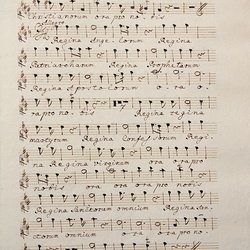 Christianorum ora pro no- bis
Regina Angelorum Regina
Patriarcharum Regina Prophetarum
Regina Apostolorum o- ra o-
ra pro nobis Regina regina
martyrum Regina Confessorum Regi-
na Regina virginum ora ora pro
nobis ora ora pro nobis
Regina Sanctorum omnium Regina San-
ctorum omnium ora ora pro nobis